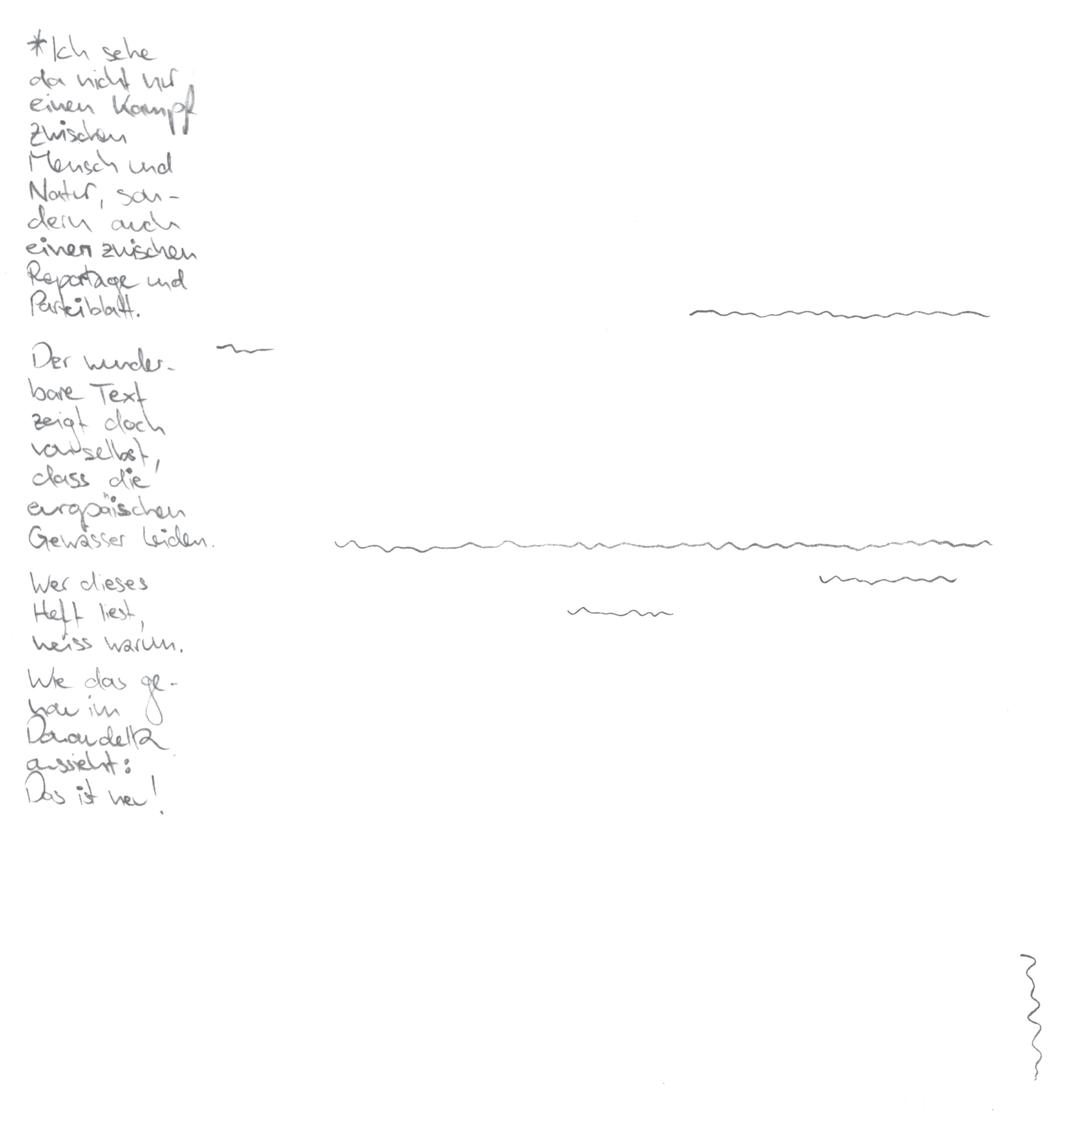 *Ich sehe
da nicht nur
einen Kampf
zwischen
Mensch und
Natur, son-
dern auch
einen zwischen
Reportage und
Parteiblatt.
Der wunder-
bare Text
zeigt doch
von selbst,
dass die
europäischen
Gewässer leiden.
Wer dieses
Heft liest,
weiss warum.
Wie das ge-
nau im
Donaudelta
aussieht:
Das ist neu!